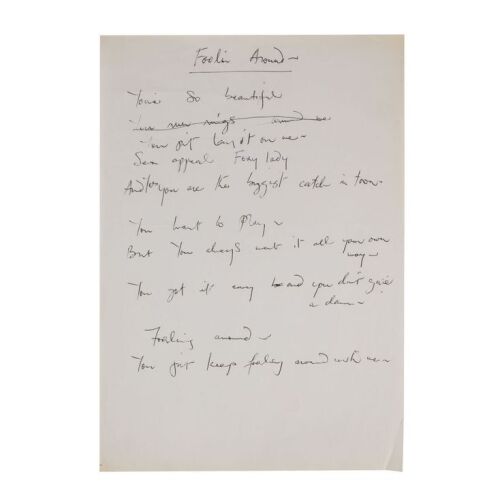 Foolin Around
You're So beautiful
You run rings around me
You just lay it on me
Sex appeal Foxy lady
And You are the biggest catch in town
You want to Play
But You always want it all your own
way
You got it easy and you don't give
a damn
Fooling around
You just keep fooling around with me